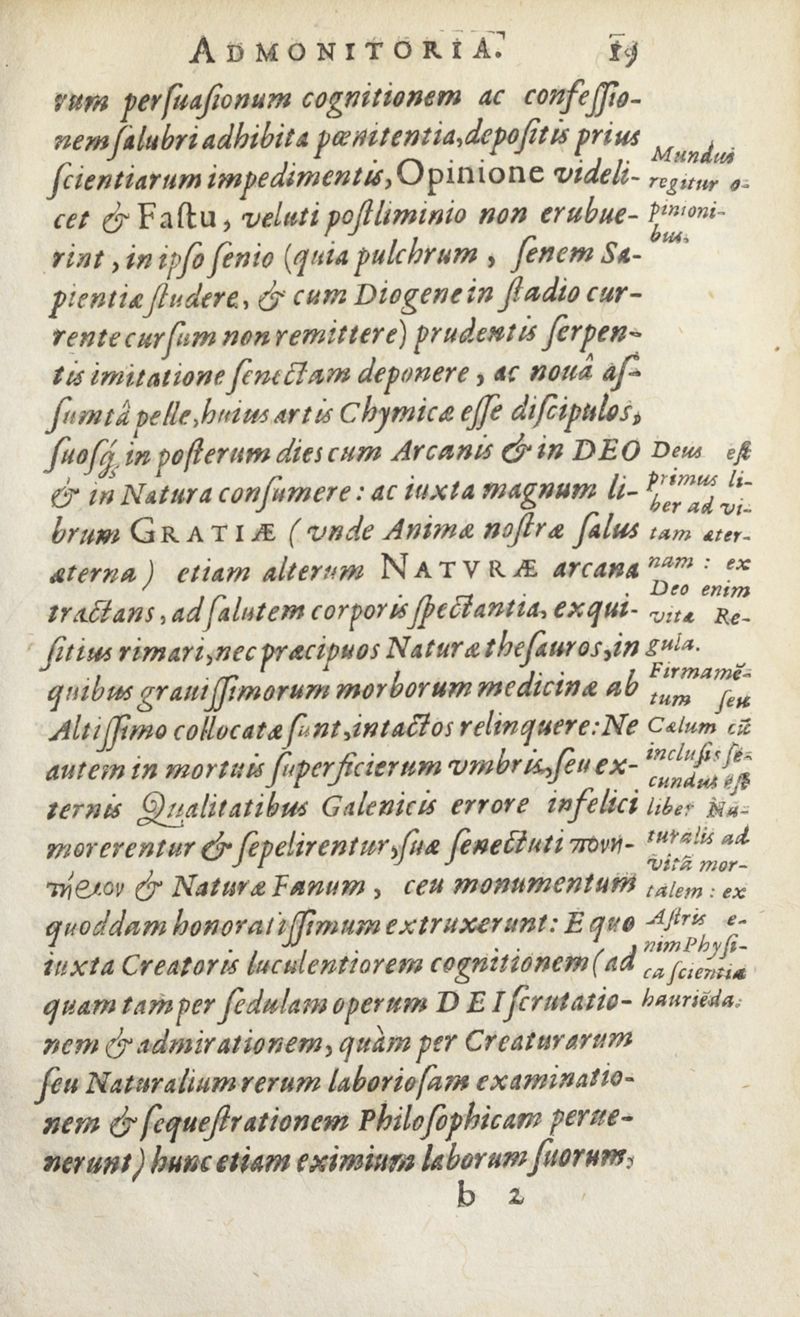 ADMONITORIA. 19
rum perſuaſionum cognitionem ac confeſſio-
nem ſalubri adhibita pœnitentia, depoſitis prius
ſcientiarum impedimentis, Opinione videli-
cet & Faſtu, veluti poſtliminio non erubue-
rint, in ipſo ſenio (quia pulchrum, ſenem Sa-
pientiæ ſtudere, & cum Diogene in ſtadio cur-
rente curſum non remittere) prudentis ſerpen-
tis imitatione ſenectam deponere, ac nouâ aſ-
ſumtâ pelle, huius artis Chymicæ eſſe diſcipulos,
ſuoſq́; in poſterum dies cum Arcanis & in DEO
& in Natura conſumere: ac iuxta magnum li-
brum GRATIÆ (vnde Animæ noſtræ ſalus
æterna) etiam alterum NATVRÆ arcana
tractans, ad ſalutem corporis ſpectantia, exqui-
ſitius rimari, nec præcipuos Naturæ theſauros, in
quibus grauiſſimorum morborum medicinæ ab
Altiſſimo collocatæ ſunt, intactos relinquere: Ne
autem in mortuis ſuperficierum vmbris, ſeu ex-
ternis Qualitatibus Galenicis errore infelici
morerentur & ſepelirentur, ſuæ ſenectuti
& Naturæ Fanum, ceu monumentum
quoddam honoratiſſimum extruxerunt: E quo
iuxta Creatoris luculentiorem cognitionem (ad
quam tam per ſedulam operum DEI ſcrutatio-
nem & admirationem, quàm per Creaturarum
ſeu Naturalium rerum laborioſam examinatio-
nem & ſequeſtrationem Philoſophicam perue-
nerunt) hunc etiam eximium laborum ſuorum,
b 2
Mundus
regitur o-
pinioni-
bus.
Deus eſt
primus li-
ber ad vi-
tam æter-
nam: ex
Deo enim
vita Re-
gula.
Firmamē-
tum ſeu
Cælum cū
incluſis ſe-
cundus eſt
liber Na-
turalis ad
vitā mor-
talem: ex
Aſtris e-
nim Phyſi-
ca ſcientia
hauriēda.